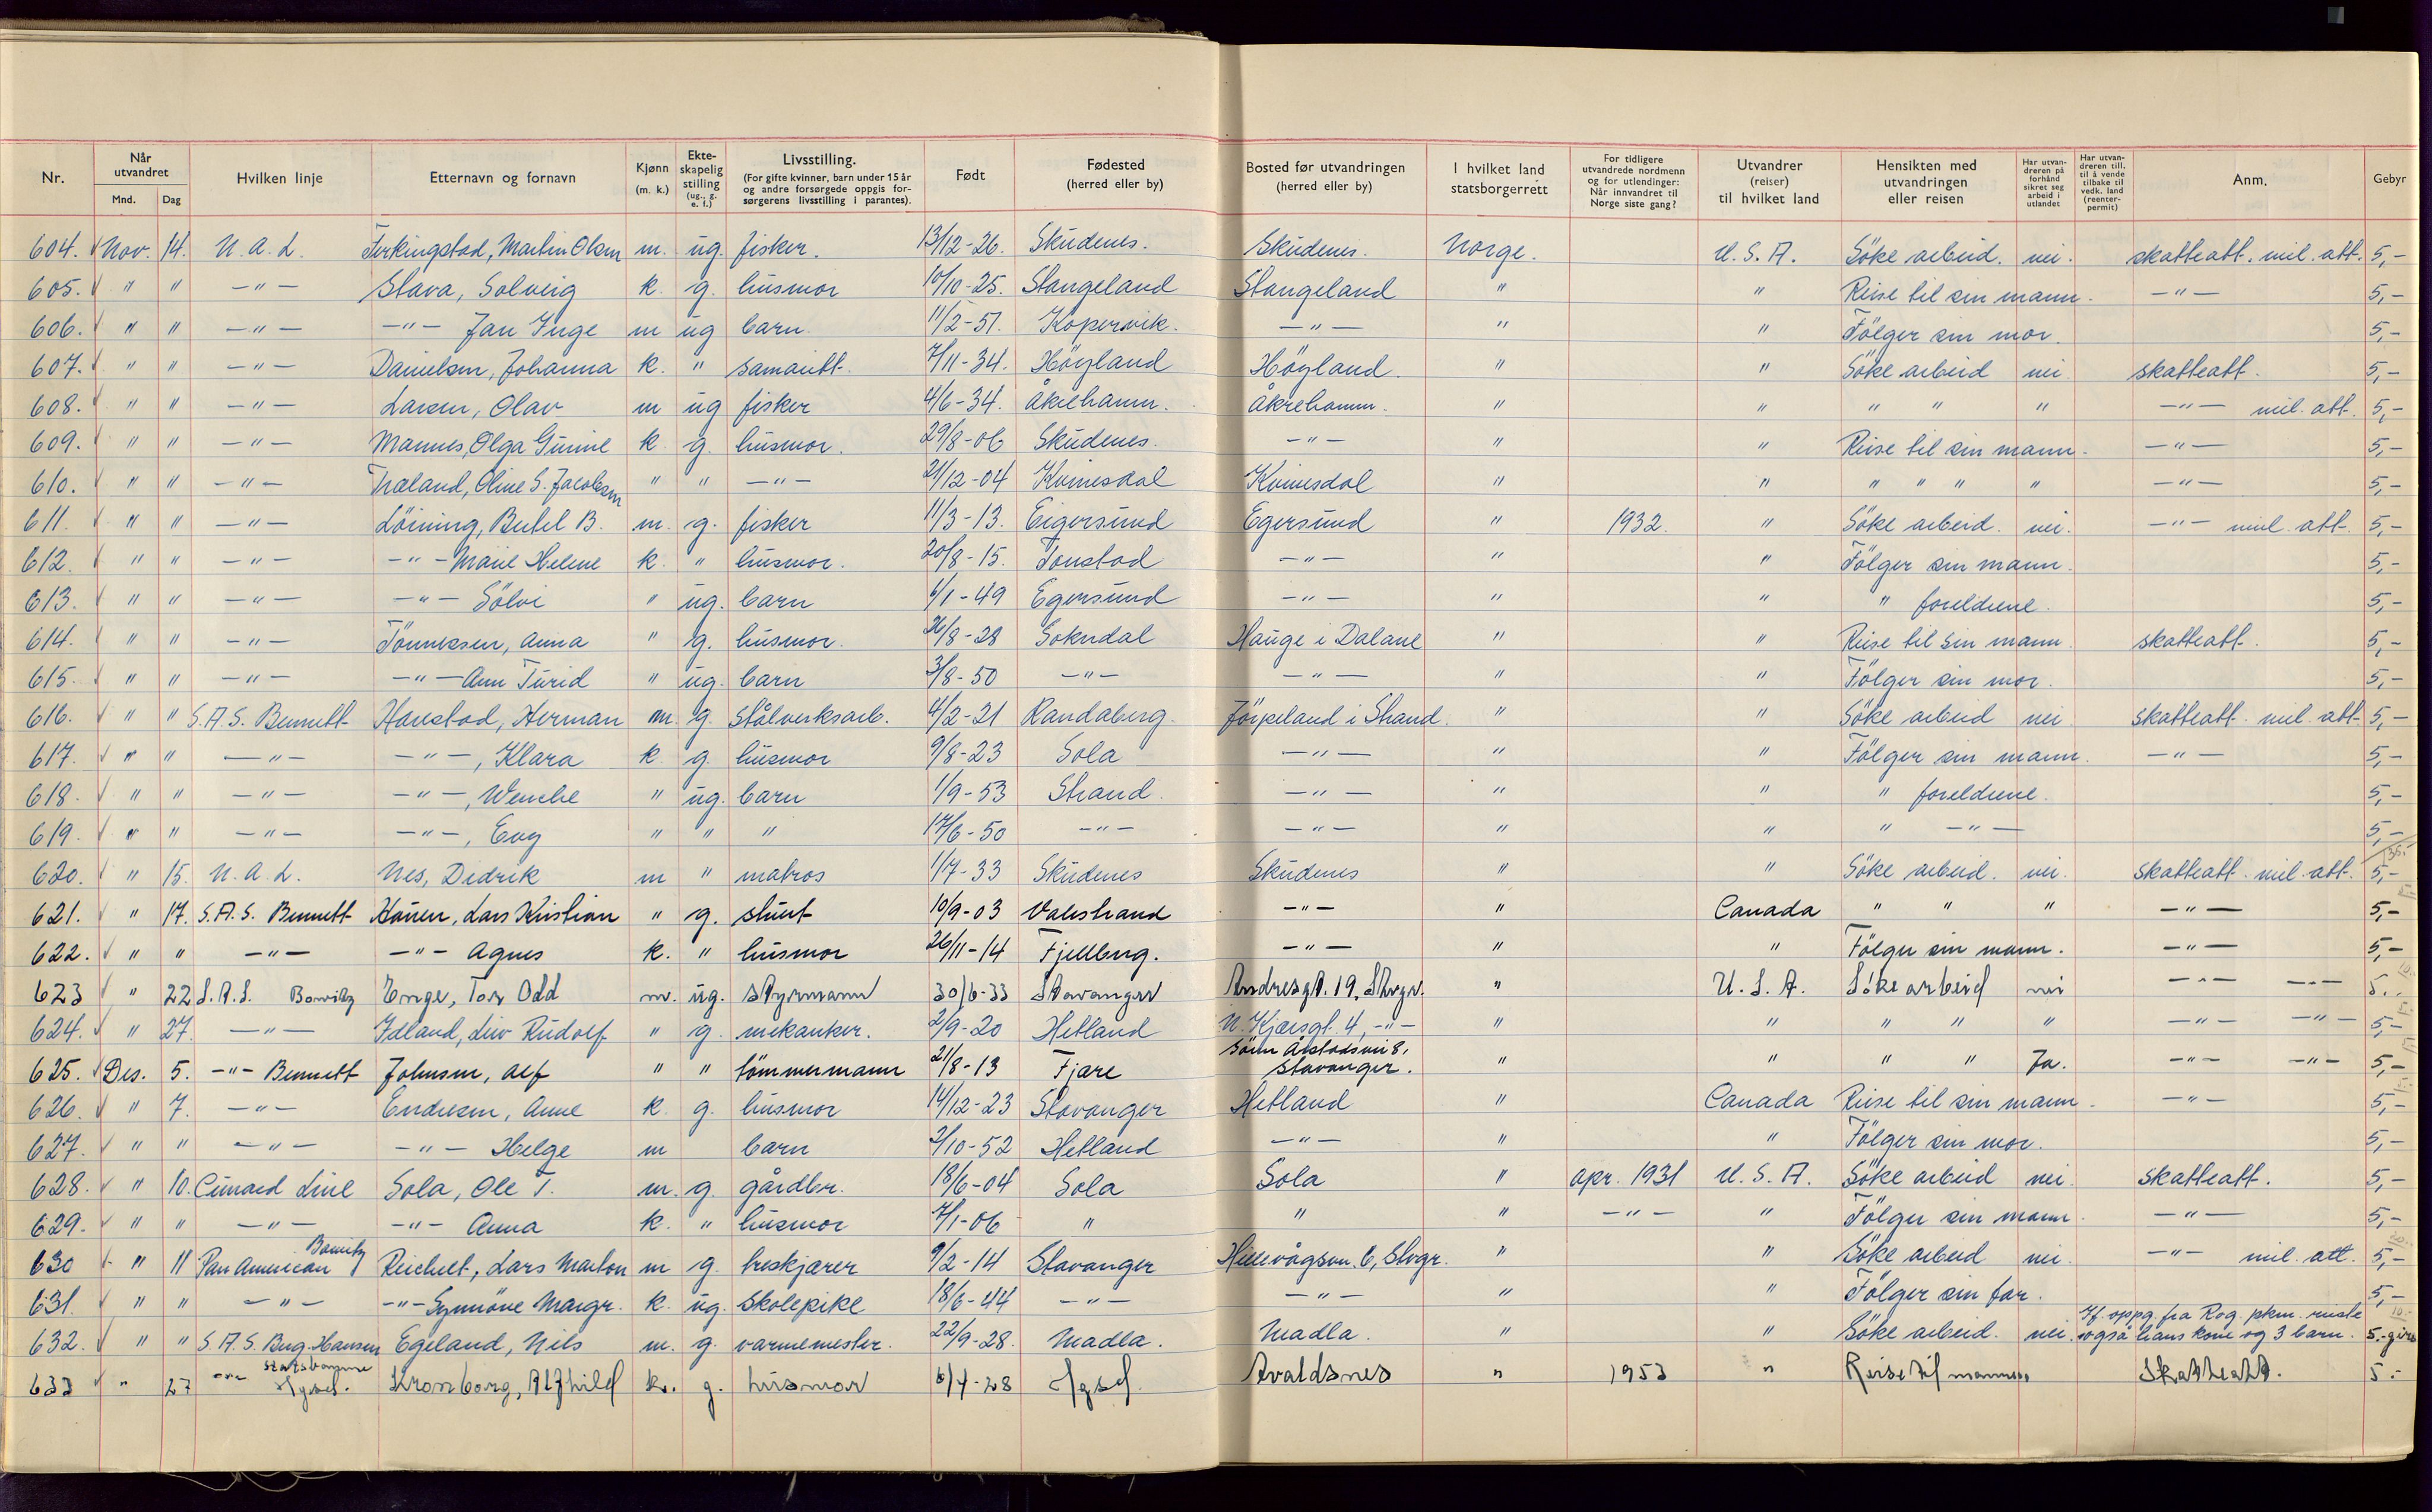 Nr. | Når utvandret Mnd. Dag | Hvilken linje | Etternavn og fornavn | Kjønn (m. k.) | Ekte-skapelig stilling (ug., g. e. f.) | Livsstilling. (For gifte kvinner, barn under 15 år og andre forsørgede oppgis forsørgerens livsstilling i parantes). | Født | Fødested (herred eller by) | Bosted før utvandringen (herred eller by) | I hvilket land statsborgerrett | For tidligere utvandrede nordmenn og for utlendinger: Når innvandret til Norge siste gang? | Utvandrer (reiser) til hvilket land | Hensikten med utvandringen eller reisen | Har utvandreren på forhånd sikret seg arbeid i utlandet | Har utvandreren till. til å vende tilbake til vedk. land (reenter-permit) | Anm. | Gebyr
604. Nov. 14. N.A.L. Ferkingstad, Martin Olsen m. ug. fisker. 13/12-26. Skudenes. Skudenes. Norge. U.S.A. Söke arbeid. nei. skatteatt. mil. att. 5,-
605. " " -"- Stava, Solveig k. g. husmor 10/10-25. Stangeland Stangeland " " Reise til sin mann. -"- 5,-
606. " " -"- -"- Jan Inge m ug barn. 11/2-51. Kopervik. -"- " " Fölger sin mor. 5,-
607. " " -"- Danielsen, Johanna k. " 7/11-34. Höyland Höyland. " " Söke arbeid nei. skatteatt. 5,-
608. " " -"- Larsen, Olav m ug fisker 4/6-34. Åkrehamn. Åkrehamn. " " " " " -"- mil. att. 5,-
609. " " -"- Mannes, Olga Gurine k. g. husmor. 29/8-06 Skudenes. -"- " " Reise til sin mann. -"- 5,-
610. " " -"- Træland, Oline S. Jacobsen " " -"- 21/12-04 Kvinesdal Kvinesdal " " " " " " -"- 5,-
611. " " -"- Löining, Bertel B. m. g. fisker 11/3-13. Eigersund Egersund " 1932. " Söke arbeid. nei. -"- mil. att. 5,-
612. " " -"- -"- Marie Helene k. " husmor. 20/8-15. Tonstad -"- " " Fölger sin mann. 5,-
613. " " -"- -"- Sölvi " ug. barn 6/1-49 Egersund -"- " " " foreldrene. 5,-
614. " " -"- Tönnessen, Anna " g. husmor. 26/8-28 Sokndal Hauge i Dalane " " Reise til sin mann. skatteatt. 5,-
615. " " -"- -"- Ann Turid " ug. barn 3/8-50 -"- -"- " " Fölger sin mor. 5,-
616. " " S.A.S. Bennett Harestad, Herman m. g. stålverksarb. 4/2-21 Randaberg. Jörpeland i Strand. " " Söke arbeid nei skatteatt. mil. att. 5,-
617. " " -"- -"-, Klara k. g. husmor 9/8-23 Sola -"- " " Fölger sin mann. -"- 5,-
618. " " -"- -"-, Wenche " ug. barn 1/9-53 Strand. -"- " " " foreldrene. 5,-
619. " " -"- -"-, Evy " " " 17/6-50 -"- -"- " " " -"- 5,-
620. " 15. N.A.L. Nes, Didrik m " matros 1/7-33 Skudenes Skudenes " " Söke arbeid. nei. skatteatt. mil. att. 5,-
621. " 17. S.A.S. Bennett Hauen, Lars Kristian " g. stuert 10/9-03 Valestrand -"- " Canada " " " -"- 5,-
622. " " -"- -"- Agnes k. " husmor 26/11-14 Fjellberg. -"- " " Fölger sin mann. -"- 5,-
623 " 22 S.A.S. Enge, Tor Odd m. ug. styrmann 30/6-33 Stavanger Andresgt. 19, Stvgr. " U.S.A. Söke arbeid nei -"- -"- 5.-
624. " 27. -"- Idland, Liv Rudolf " g. mekaniker. 2/9-20 Hetland N. Kjærsgt. 4, -"- " " " " " -"- -"- 5,-
625. Des. 5. -"- Bennett Johnsen, Alf " " tömmermann 21/8-13 Fjære Sörn. Årstadsvei 8, Stavanger. " " " " Ja. -"- -"- 5,-
626. " 7. -"- Endresen, Anne k. g. husmor 14/12-23 Stavanger Hetland " Canada Reise til sin mann. -"- 5,-
627. " " -"- -"- Helge m barn 2/10-52 Hetland -"- " " Fölger sin mor. 5,-
628. " 10. Cunard Line Sola, Ole T. m. g. gårdbr. 18/6-04 Sola Sola " apr. 1931 U.S.A. Söke arbeid nei. skatteatt. 5,-
629. " " -"- -"- Anna k. " husmor 7/1-06 " " " -"- " Fölger sin mann. -"- 5,-
630 " 11 Pan American Reichelt, Lars Marton m g. treskjærer 9/2-14 Stavanger Hillevågsvn. 6, Stvgr. " " Söke arbeid nei. -"- mil. att. 5,-
631. " " -"- -"- Synnöve Margr. k. ug. skolepike 18/6-44 -"- -"- " " Fölger sin far. 5,-
632. " " S.A.S. Berg-Hansen Egeland, Nils m. g. varmemester. 22/9-28. Madla. Madla. " " Söke arbeid. nei. If. oppg. fra Rog. pkm. reiste også hans kone og 3 barn. 5.- giro
633 " 27 -"- Kronborg, Alfhild k. g. husmor 6/4-28 Avaldsnes " 1953 " Reise til mannen. Skatteatt. 5.-